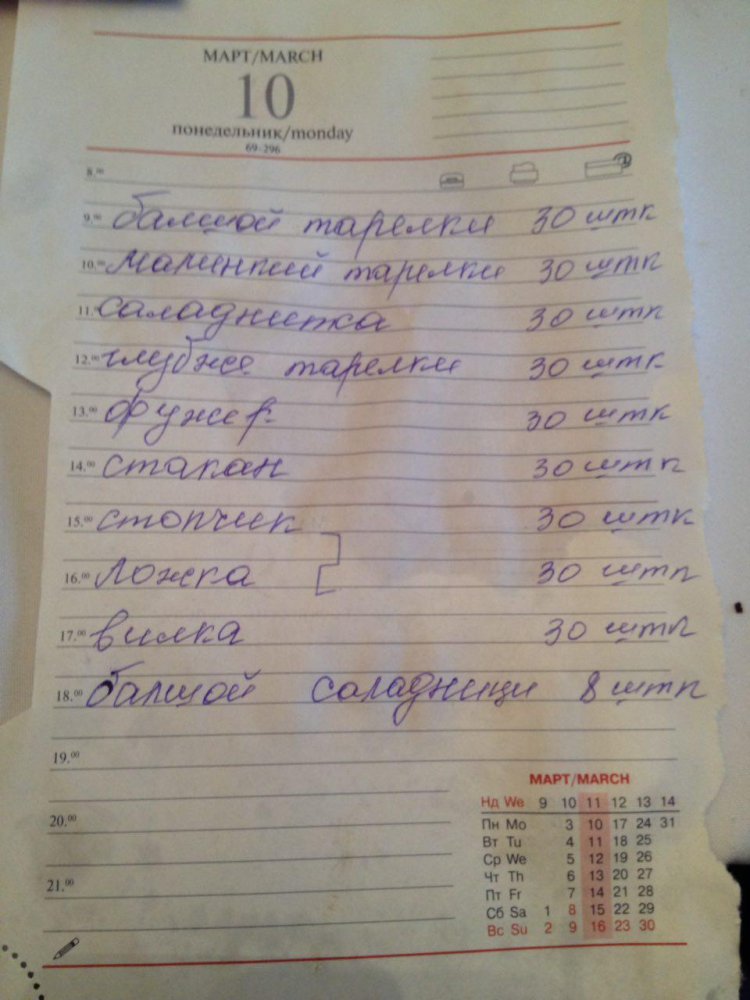 МАРТ/MARCH
10
понедельник/monday
69-296
8.⁰⁰
9.⁰⁰ балшой тарелки 30 штк
10.⁰⁰ малинкий тарелки 30 штк
11.⁰⁰ саладнитка 30 штк
12.⁰⁰ глубже тарелки 30 штк
13.⁰⁰ фужер 30 штк
14.⁰⁰ стакан 30 штк
15.⁰⁰ стопчик 30 штк
16.⁰⁰ ложка 30 штк
17.⁰⁰ вилка 30 штк
18.⁰⁰ балшой саладници 8 штк
19.⁰⁰
20.⁰⁰
21.⁰⁰
МАРТ/MARCH
Нд We 9 10 11 12 13 14
Пн Mo 3 10 17 24 31
Вт Tu 4 11 18 25
Ср We 5 12 19 26
Чт Th 6 13 20 27
Пт Fr 7 14 21 28
Сб Sa 1 8 15 22 29
Вс Su 2 9 16 23 30